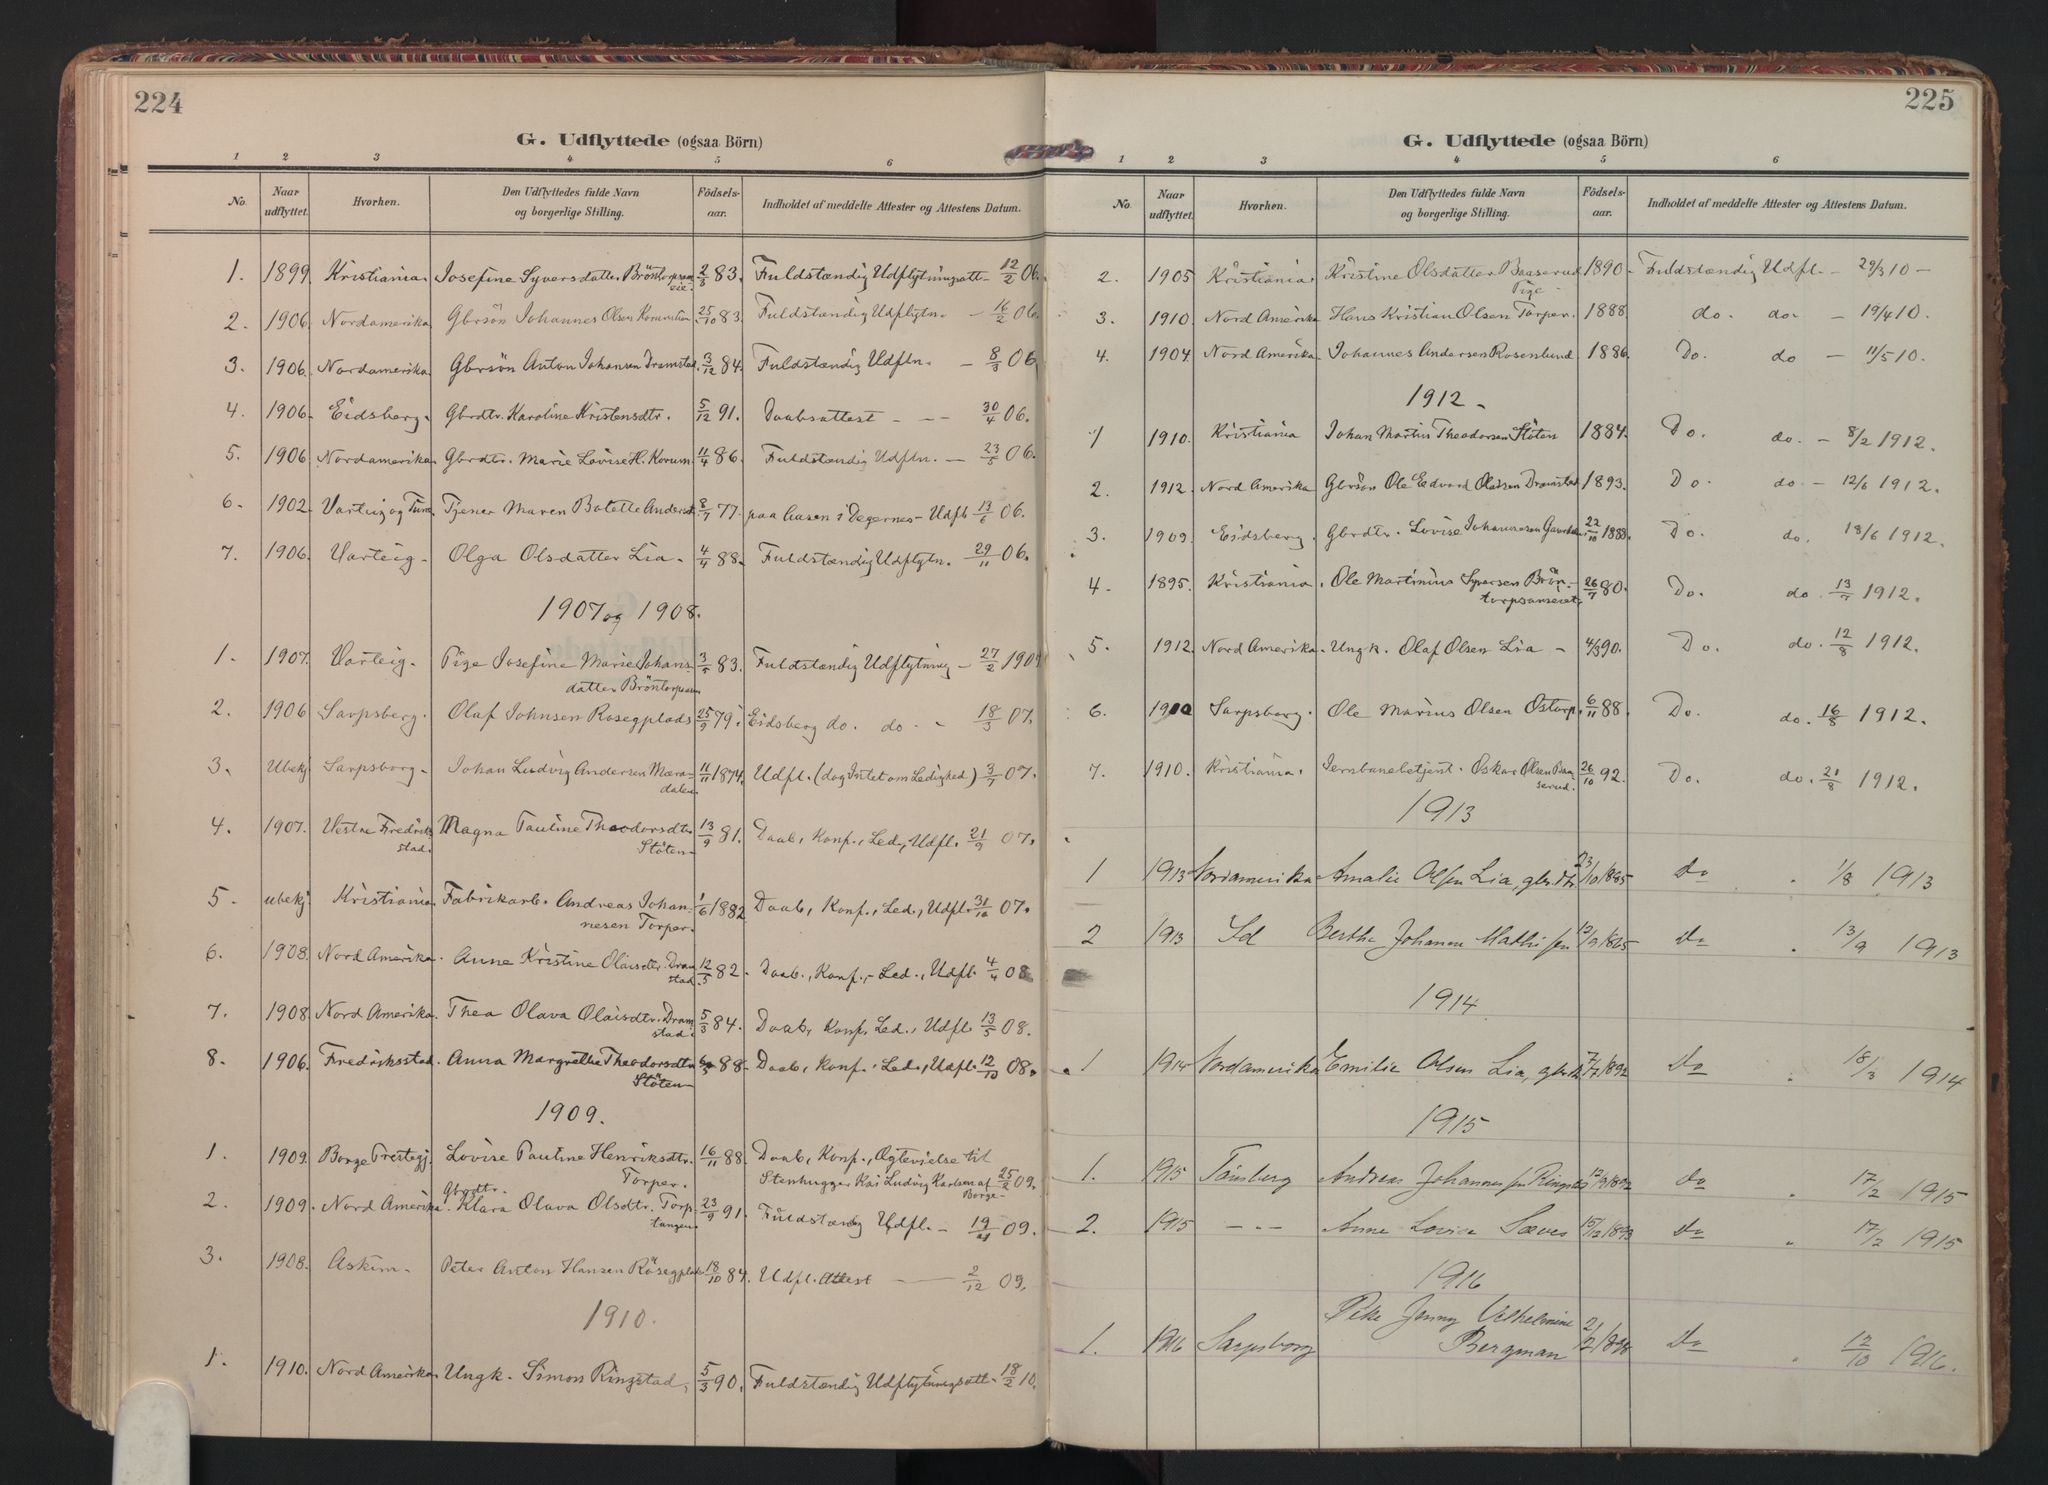 224
G. Udflyttede (ogsaa Börn)
1 2 3 4 5 6
No. Naar udflyttet. Hvorhen. Den Udflyttedes fulde Navn og borgerlige Stilling. Födselsaar. Indholdet af meddelte Attester og Attestens Datum.
1. 1899. Kristiania. Josefine Syversdatter Bröntorps 2/3 83. Fuldstændig Udflytningsatt. 12/2 06.
eie.
2. 1906. Nordamerika. Gbrsön Johannes Olsen 25/10 83. Fuldstændig Udflytn. - 16/2 06.
3. 1906. Nordamerika. Gbrsön Anton Johansen Dramstad. 3/12 84. Fuldstændig Udfltn. - 8/3 06.
4. 1906. Eidsberg. Gbrdtr. Karoline Kristensdtr. 5/12 91. Daabsattest - - 30/4 06.
5. 1906. Nordamerika. Gbrdtr. Marie Lovise H. Korum. 11/4 86. Fuldstændig Udfltn. - 23/5 06.
6. 1902. Varteig og Tune Tjener Maren Botette Andersdt 8/7 77. paa Aasen i Degernes - Udfl. 13/6 06.
7. 1906. Varteig. Olga Olsdatter Lia. 4/4 88. Fuldstændig Udflytn. 29/11 06.
1907 og 1908.
1. 1907. Varteig. Pige Josefine Marie Johans- 3/5 83. Fuldstændig Udflytning - 27/2 190
datter Bröntorp
2. 1906 Sarpsborg. Olaf Johnsen Rosegplads 25/9 79 i Eidsberg do. do. - 18/3 07.
3. Ubekj. Sarpsborg. Johan Ludvig Andersen Mæra- 11/11 1874. Udfl. (dog Intet om Ledighed) 3/7 07.
dalen
4. 1907. Vestre Fredrik Magna Pauline Theodorsdtr 13/9 81. Daab, Konf., Led., Udfl. 21/9 07.
stad. Stöten
5. ubekj. Kristiania Fabrikarb. Andreas Johan- 1/6 1882 Daab, Konf., Led., Udfl. 31/10 07.
nesen Torper.
6. 1908. Nord Amerika. Anne Kristine Olaisdtr. Dram 12/5 82. Daab., Konf., Led., Udfl. 4/4 08
stad.
7. 1908. Nord Amerika. Thea Olava Olaisdtr. Dram 5/3 84. Daab, Konf., Led., Udfl. 13/5 08.
stad.
8. 1906. Fredriksstad. Anna Margrethe Theodorsdtr 88. Daab, Konf., Led., Udfl. 12/10 08.
Stöten
1909.
1. 1909. Borge Prestegj. Lovise Pauline Henriksdtr. 16/11 88. Daab, Konf., Ægtevielse til
Torper. Stenhugger Kai Ludvig Karlsen af 25/2 09.
Gbrdtr. Borge
2. 1909. Nord Amerika. Klara Olava Olsdtr. Torp 23/9 91. Fuldstændig Udfl. - 09.
tangen
3. 1908. Askim. Peter Anton Hansen Rösegplads 18/10 84. Udfl. Attest - 2/12 09.
1910.
1. 1910. Nord Amerika. Ungk. Simon Ringstad, 5/3 90. Fuldstændig Udflytningsatt. 18/2 10.
225
G. Udflyttede (ogsaa Börn)
1 2 3 4 5 6
No. Naar udflyttet. Hvorhen. Den Udflyttedes fulde Navn og borgerlige Stilling. Födselsaar. Indholdet af meddelte Attester og Attestens Datum.
2. 1905. Kristiania. Kristine Olsdatter Baaserud 1890 - Fuldstændig Udfl - 29/3 10 -
Pige
3. 1910. Nord Amerika Hans Kristian Olsen Torper. 1888. do. do. - 19/4 10.
4. 1904. Nord Amerika. Johannes Andersen Rosenlund 1886. Do. do - 11/5 10.
1912.
1 1910. Kristiania Johan Martin Theodorsen Stöten 1884. Do. do. - 8/2 1912.
2. 1912. Nord Amerika Gbrsön Ole Edvard Olaisen Dramstad 1893. Do. do. - 12/6 1912.
3. 1909. Eidsberg. Gbrdtr. Lovise Johannesen 22/10 1888. Do. do. 18/6 1912.
4. 1895. Kristiania. Ole Martinius Syversen Brön- 26/7 80. Do. do. 13/7 1912.
torpsaneiet.
5. 1912. Nord Amerika. Ungk. Olaf Olsen Lia - 4/3 90. Do. do. 12/8 1912.
6. 1910 Sarpsborg. Ole Marius Olsen Ostorp. 6/11 88. Do. do. 16/8 1912.
7. 1910. Kristiania. Jernbanebetjent. Oskar Olsen Baa- 26/10 92. Do. do. 21/8 1912.
serud.
1913
1 1913 Nordamerika Amalie Olsen Lia, gbrdtr 23/10 1885 Do " 1/8 1913
2 1913 Id Berthe Johanne Mathisen 12/9 1865 Do " 13/9 1913
1914
1 1914 Nordamerika Emilie Olsen Lia, gbrdtr 7/7 1892 Do " 18/3 1914
1915
1. 1915 Tönsberg Andreas Johannessen Ringstad 12/9 1892 Do " 17/2 1915
2. 1915 - " - Anne Lovise Sæves 15/12 1893 Do " 17/2 1915
1916
Pike Jenny Vilhelmine
1. 1916 Sarpsborg Bergman 2/2 1898 Do " 12/10 1916.